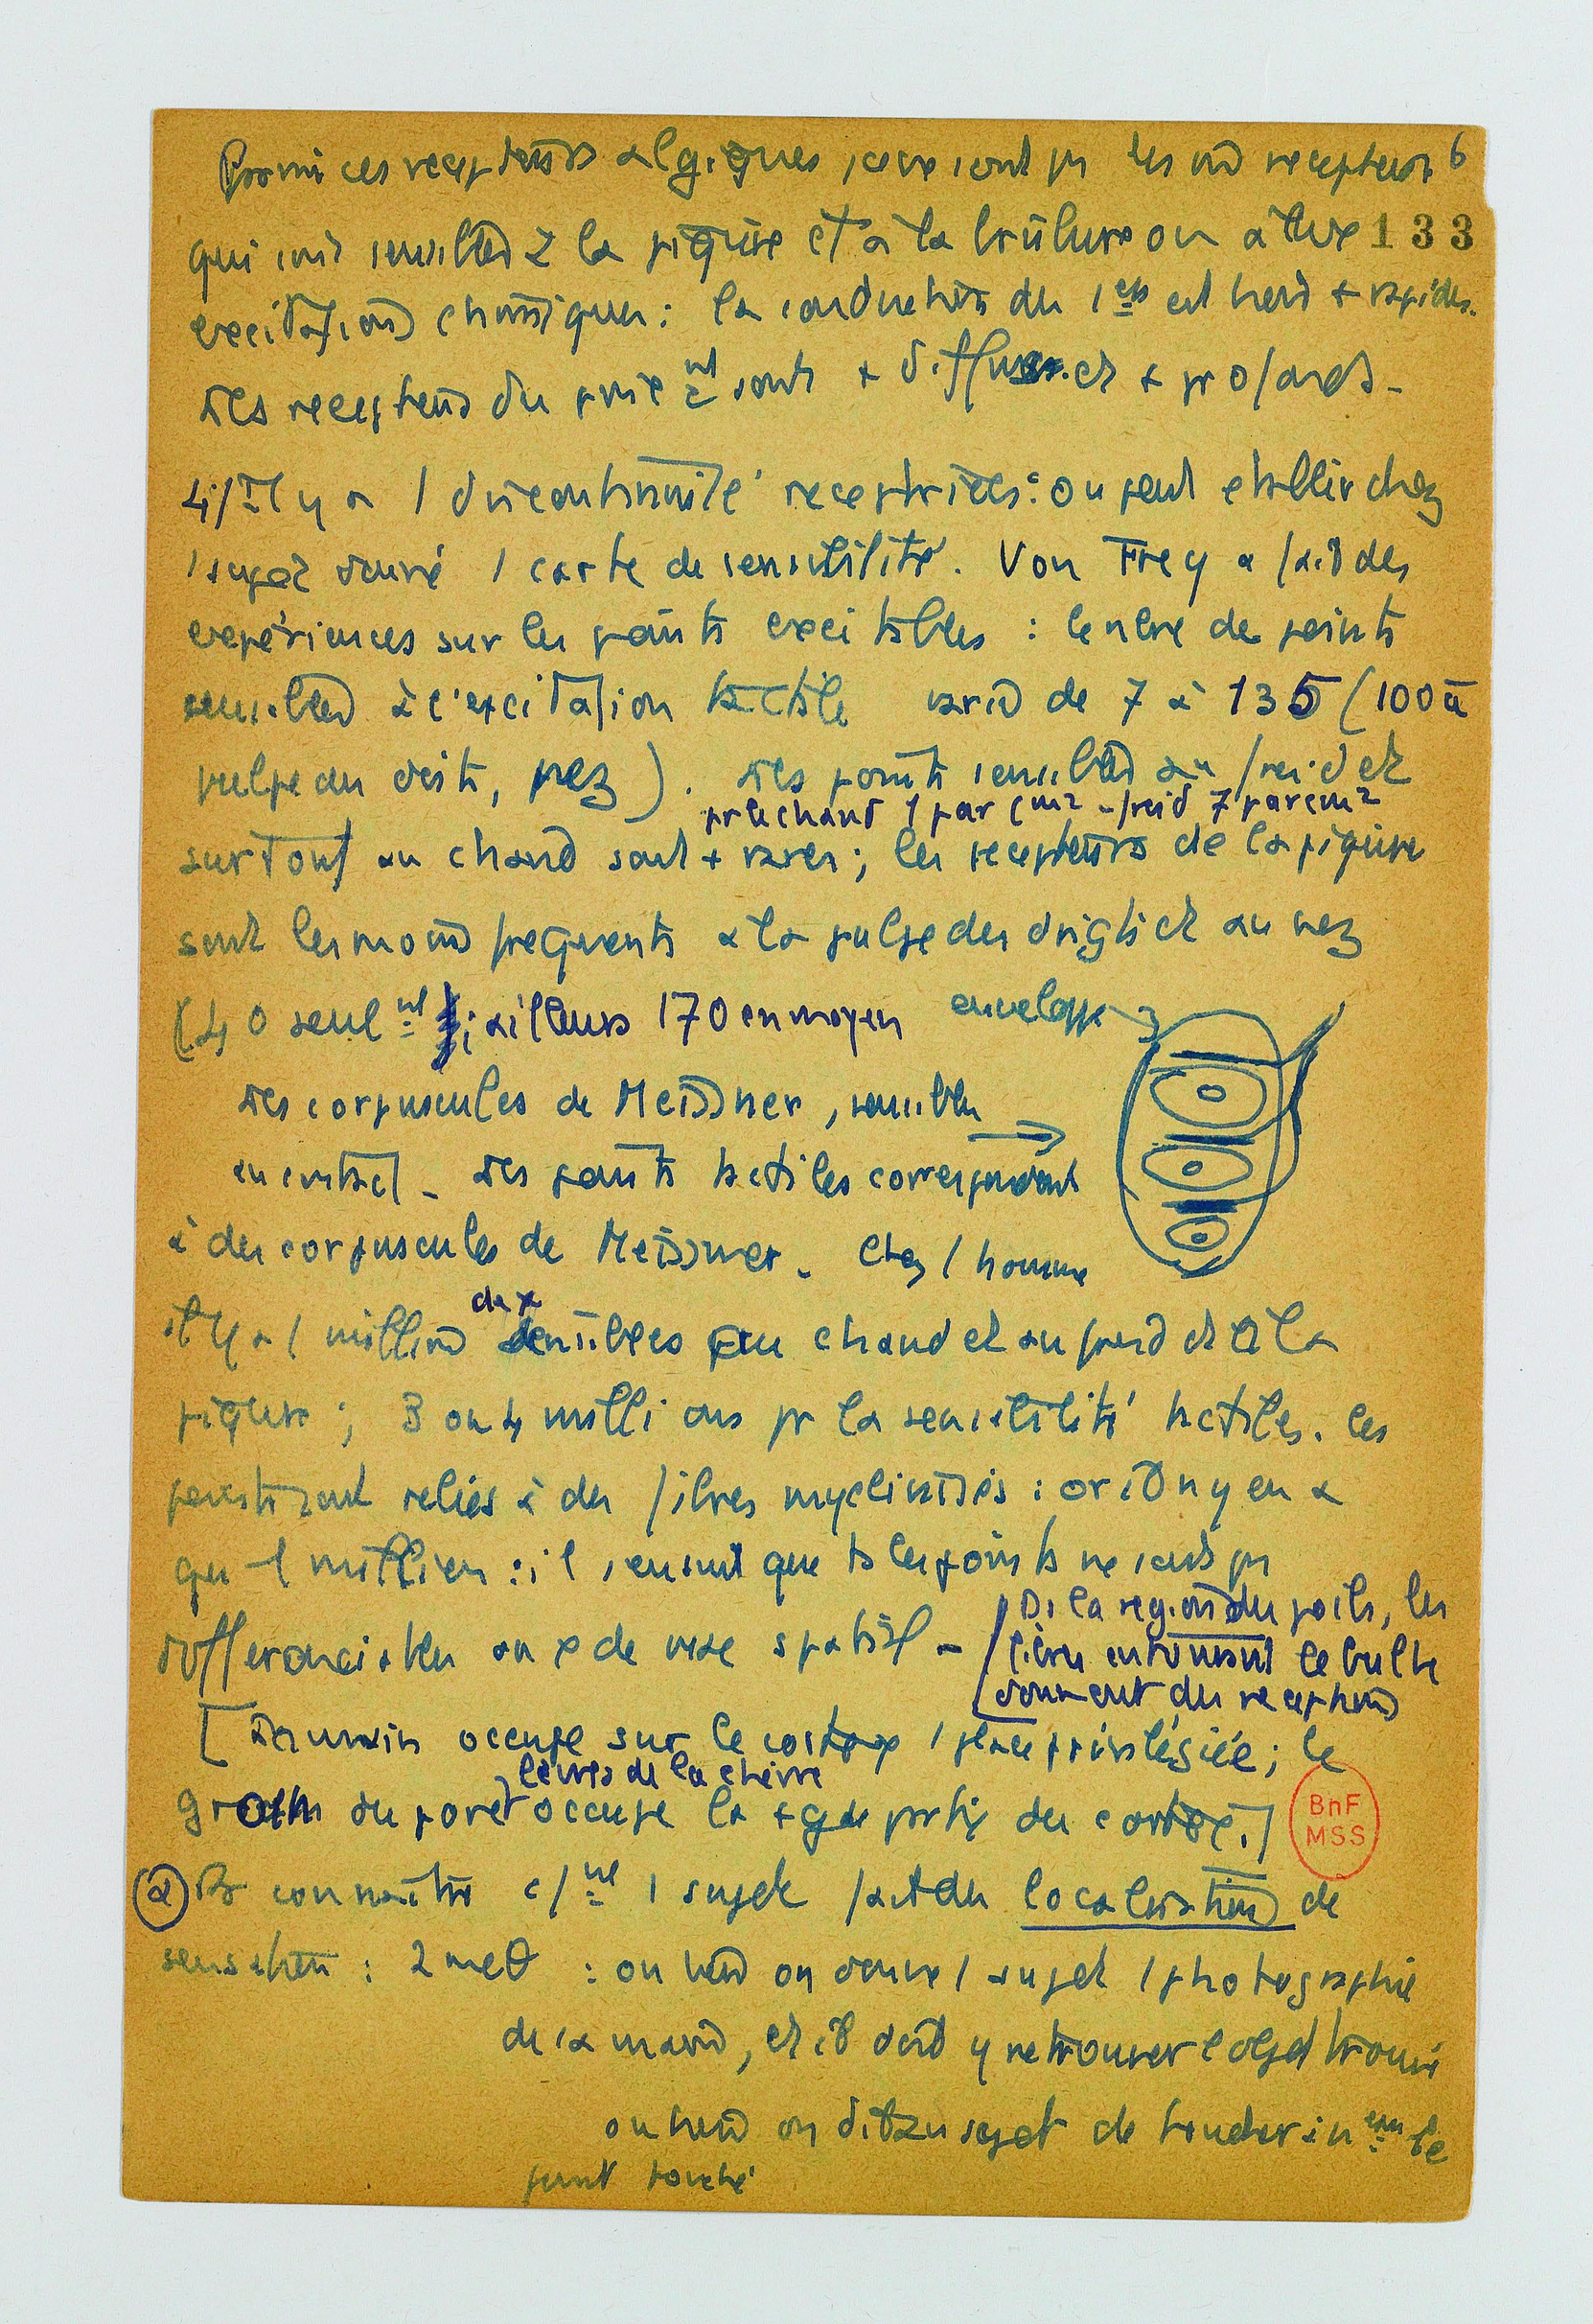 Parmi ces recepteurs algiques, ce ne sont pas les m recepteurs 6
qui sont sensibles à la piqûre et à la brûlure ou à l'exc 133
excitations chimiques : la conduction des 1ers est bcp + rapide.
Les recepteurs du sont + diffus et + profonds -
4/ Il y a 1 discontinuité receptrice : on peut etablir chez
1 sujet donné 1 carte de sensibilité. Von Frey a fait des
expériences sur les points excitables : le nbre de points
sensibles à l'excitation tactile varie de 7 à 135 (100 à
pulpe du doigt, nez). Les points sensibles au froid et
pr le chaud 1 par cm² - froid 7 par cm²
surtout au chaud sont + rares ; les recepteurs de la piqure
sont les moins frequents à la pulpe des doigts et au nez
(40 seult ; ailleurs 170 en moyen
enveloppe
Les corpuscules de Meissner, sensibles
au contact - Les points tactiles correspondent
à des corpuscules de Meissner. Chez l homme
il y a 1 million de sensibles au chaud et au froid et à la
piqure ; 3 ou 4 millions pr la sensibilité tactile. Les
points sont reliés à des fibres myelinisés : or il n y en a
qu 1 million : il s ensuit que ts les points ne sont pas
differenciables au de vue spatial -
Ds la region des poils, les
fibres entourant le bulbe
donnent des recepteurs
[La main occupe sur le cortex 1 place privilégiée ; le
lèvres de la chèvre
groin du porc occupe la + gde partie du cortex.]
BnF
MSS
② Pr connaitre 1 sujet fait des localisations de
sensation : 2 meθ : ou bien on donne 1 sujet 1 photographie
de la main, et il doit y retrouver l objet trouvé
ou bien on dit au sujet de toucher le
point touché